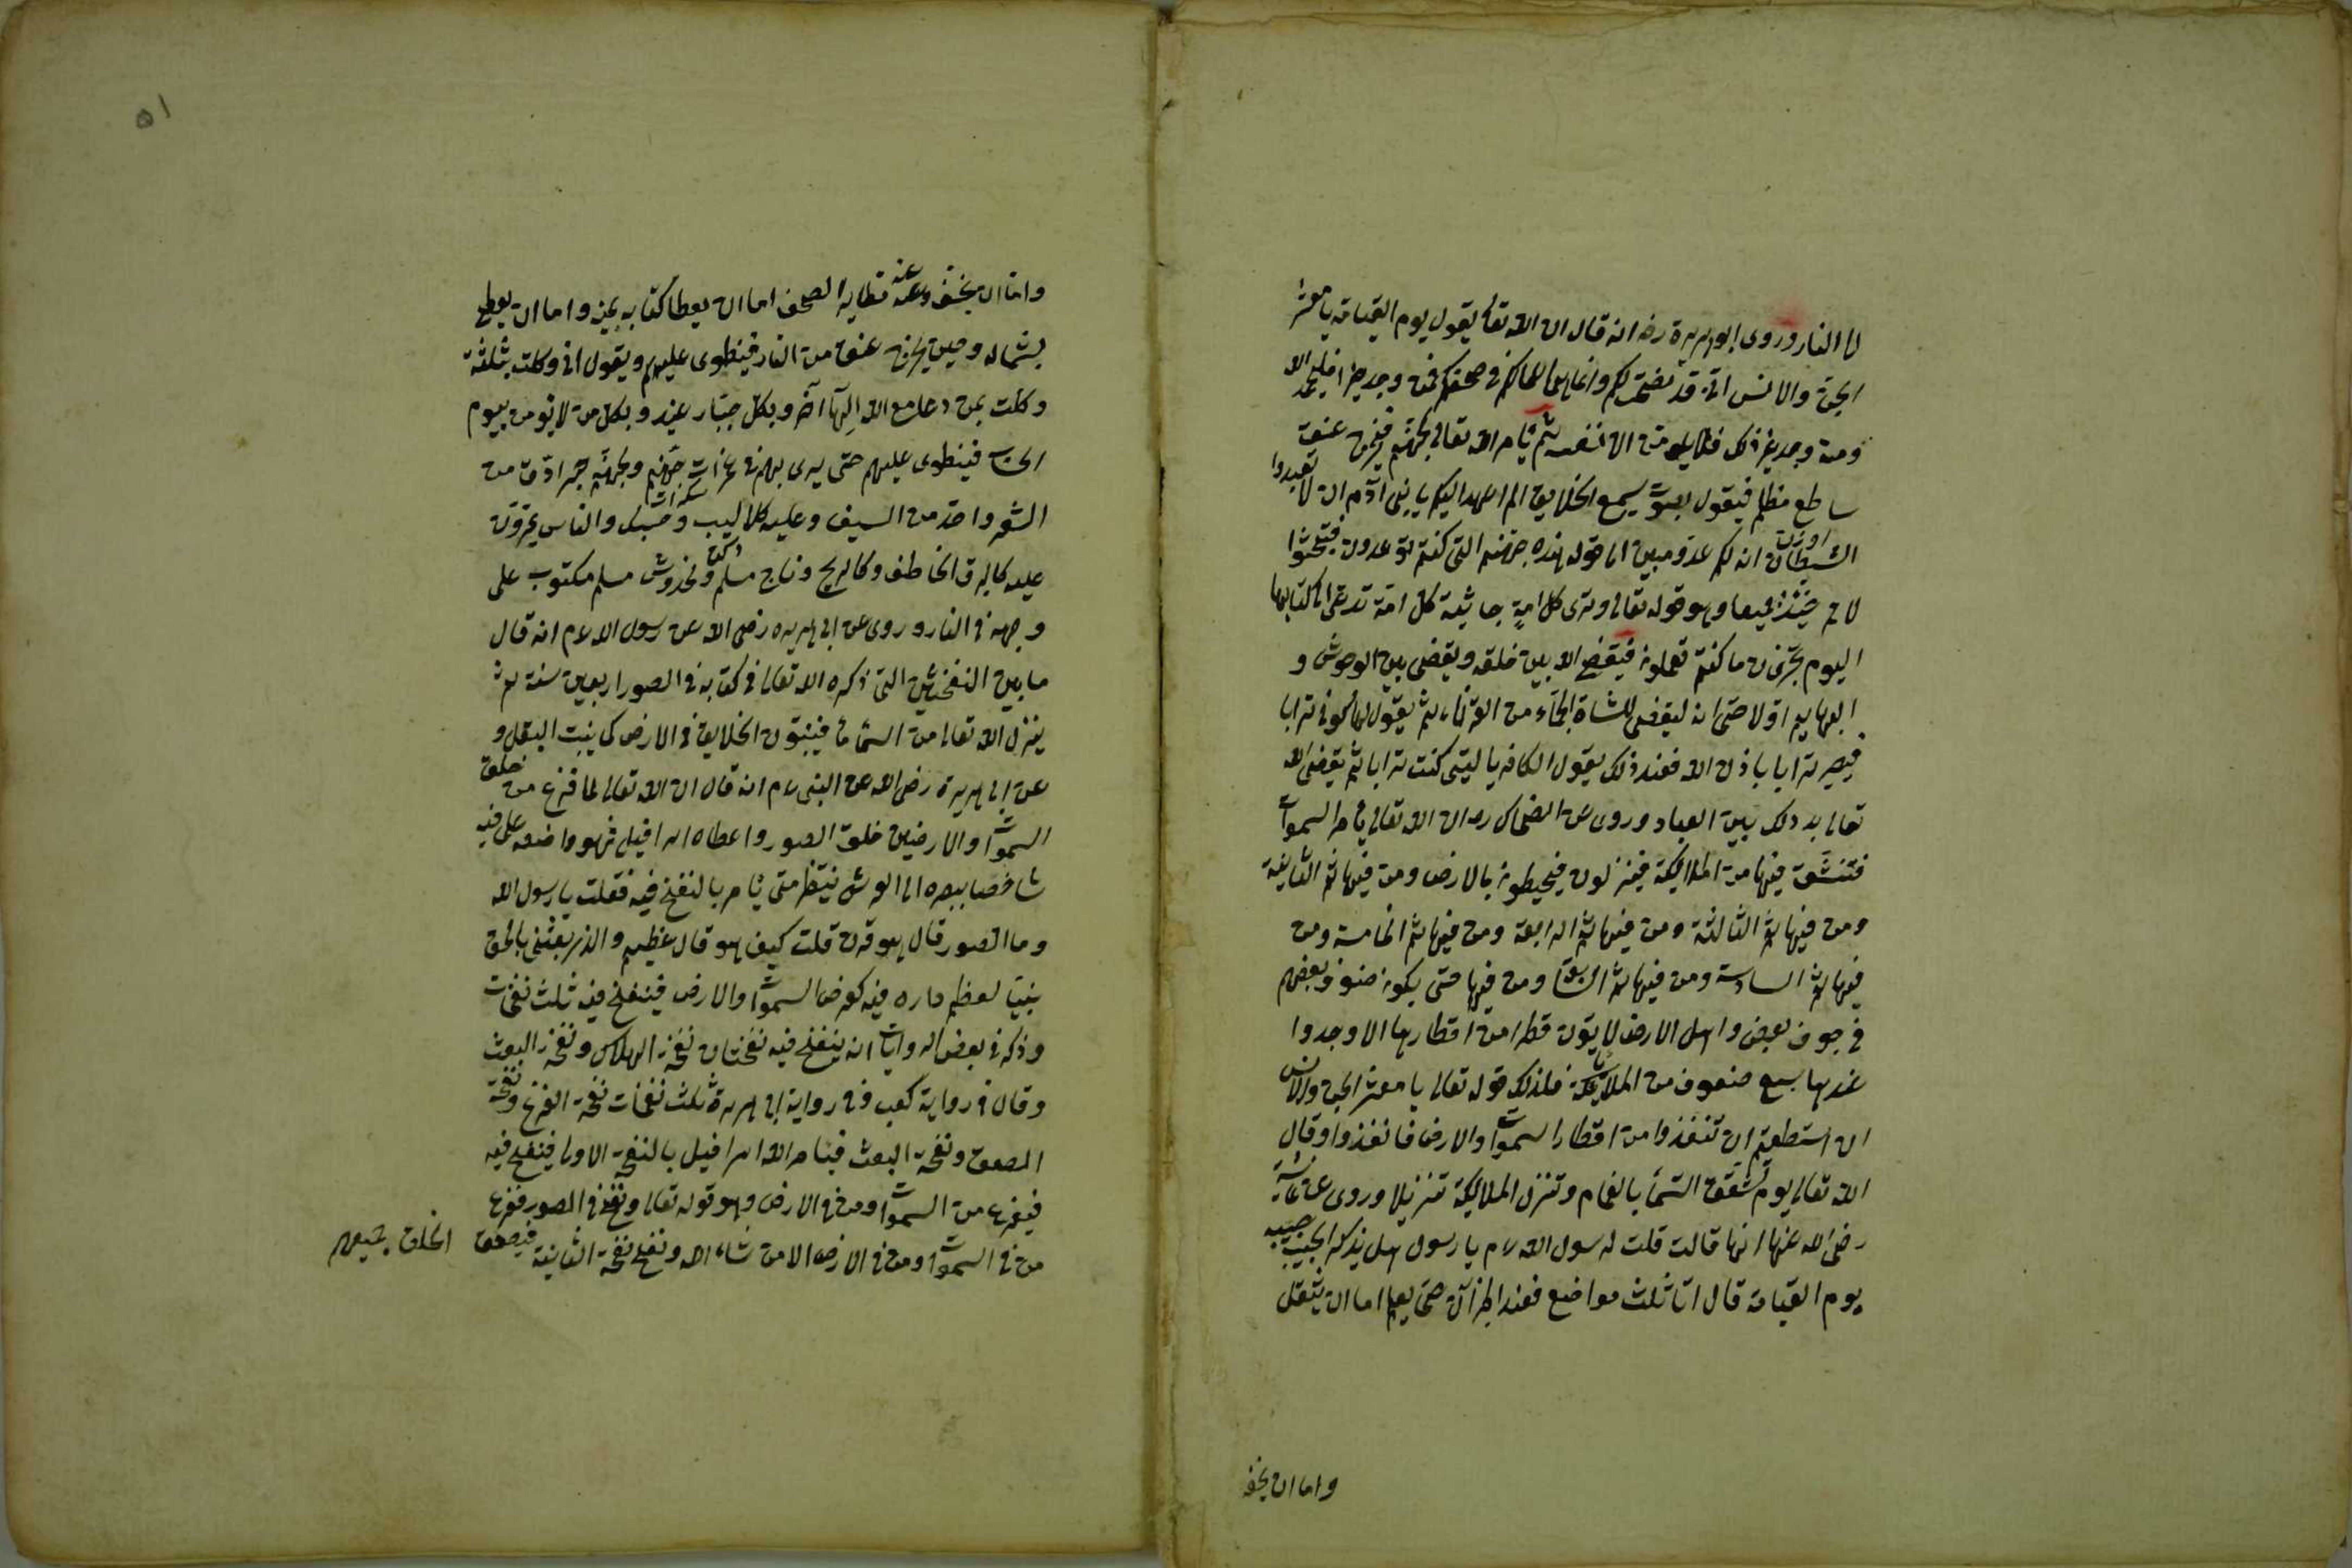 الى النار وروى ابو هريرة رضه انه قال ان الله تعالى يقول يوم القيامة يا معشر
الجن والانس انى قد نصحت لكم وانما هى اعمالكم فى صحفكم فمن وجد خيرا فليحمد الله
ومن وجد غير ذلك فلا يلومن الا نفسه ثم يأمر الله تعالى بجهنم فيخرج عنق
ساطع مظلم فيقول بصوت يسمع الخلايق الم اعهد اليكم يا بنى آدم ان لا تعبدوا
الشيطان انه لكم عدو مبين الى قوله هذه جهنم التى كنتم توعدون فيجثوا
الامم حينئذ جميعا وهو قوله تعالى وترى كل امة جاثية كل امة تدعى الى كتابها
اليوم تجزون ما كنتم تعملون فيقضى الله بين خلقه ويقضى بين الوحوش و
البهايم اولا حتى انه ليقضى للشاة الجماء من القرناء ثم يقول لها كونى ترابا
فيصير ترابا باذن الله فعند ذلك يقول الكافر يا ليتنى كنت ترابا ثم يقضى الله
تعالى بعد ذلك بين العباد وروى عن الضحاك رحه ان الله تعالى يأمر السموات
فتنشق فيها من الملائكة فينزلون فيحيطون بالارض ومن فيها ثم الثانية
ومن فيها ثم الثالثة ومن فيها ثم الرابعة ومن فيها ثم الخامسة ومن
فيها ثم السادسة ومن فيها ثم السابعة ومن فيها حتى يكون صفوف بعضهم
فى جوف بعض واهل الارض لا يأتون قطرا من اقطارها الا وجدوا
عندها سبع صفوف من الملائكة فلذلك قوله تعالى يا معشر الجن والانس
ان استطعتم ان تنفذوا من اقطار السموات والارض فانفذوا وقال
الله تعالى يوم تشقق السمأ بالغمام وتنزل الملائكة تنزيلا وروى عن عائشة
رضى الله عنها انها قالت قلت لرسول الله عم يا رسول هل يذكر الحبيب حبيبه
يوم القيامة قال اما ثلث مواضع فعند الميزان حتى يعلم اما ان يثقل
واما ان يخف
٥١
واما ان يخف وعند تطاير الصحف اما ان يعطا كتابه بيمين واما ان يعطى
بشماله وحين يخرج عنق من النار فينطوى عليهم ويقول انى وكلت بثلثة
وكلت بمن دعا مع الله الها آخر وبكل جبار عنيد وبكل من لا يؤمن بيوم
الحساب فينطوى عليهم حتى يرمى بهم فى غمرات جهنم ولجهنم جسر ادق من
الشعر واحد من السيف وعليه كلاليب وحسك والناس يمرون
عليه كالبرق الخاطف وكالريح وناج مسلم ومخدوش مسلم مكتوب على
وجهه فى النار وروى عن ابى هريره رضى الله عن رسول الله عم انه قال
ما بين النفختين التى ذكره الله تعالى فى كتابه فى الصور اربعين سنة ثم
ينزل الله تعالى من السماء ماء فينبتون الخلايق فى الارض كما ينبت البقل و
عن ابى هريرة رضى الله عن النبى عم انه قال ان الله تعالى لما فرغ من خلق
السموات والارضين خلق الصور واعطاه اسرافيل فهو واضعه على فيه
شاخصا ببصره الى العرش ينتظر متى يأمر بالنفخ فيه فقلت يا رسول الله
وما الصور قال هو قرن قلت كيف هو قال عظيم والذى بعثنى بالحق
نبيا لعظم داره فيه كعرض السموات والارض فينفخ فيه ثلث نفخات
وذكر فى بعض الروايات انه ينفخ فيه نفختان نفخة الهلاك ونفخة البعث
وقال فى رواية كعب وفى رواية ابى هريرة ثلث نفخات نفخة الفزع ونفخة
الصعق ونفخة البعث فيأمر الله اسرافيل بالنفخة الاولى فينفخ فيه
فيفزع من السموات ومن فى الارض وهو قوله تعالى ونفخ فى الصور ففزع
من فى السموات ومن فى الارض الا من شاء الله ونفخ نفخة الثانية فيصعق
الخلق جميعهم